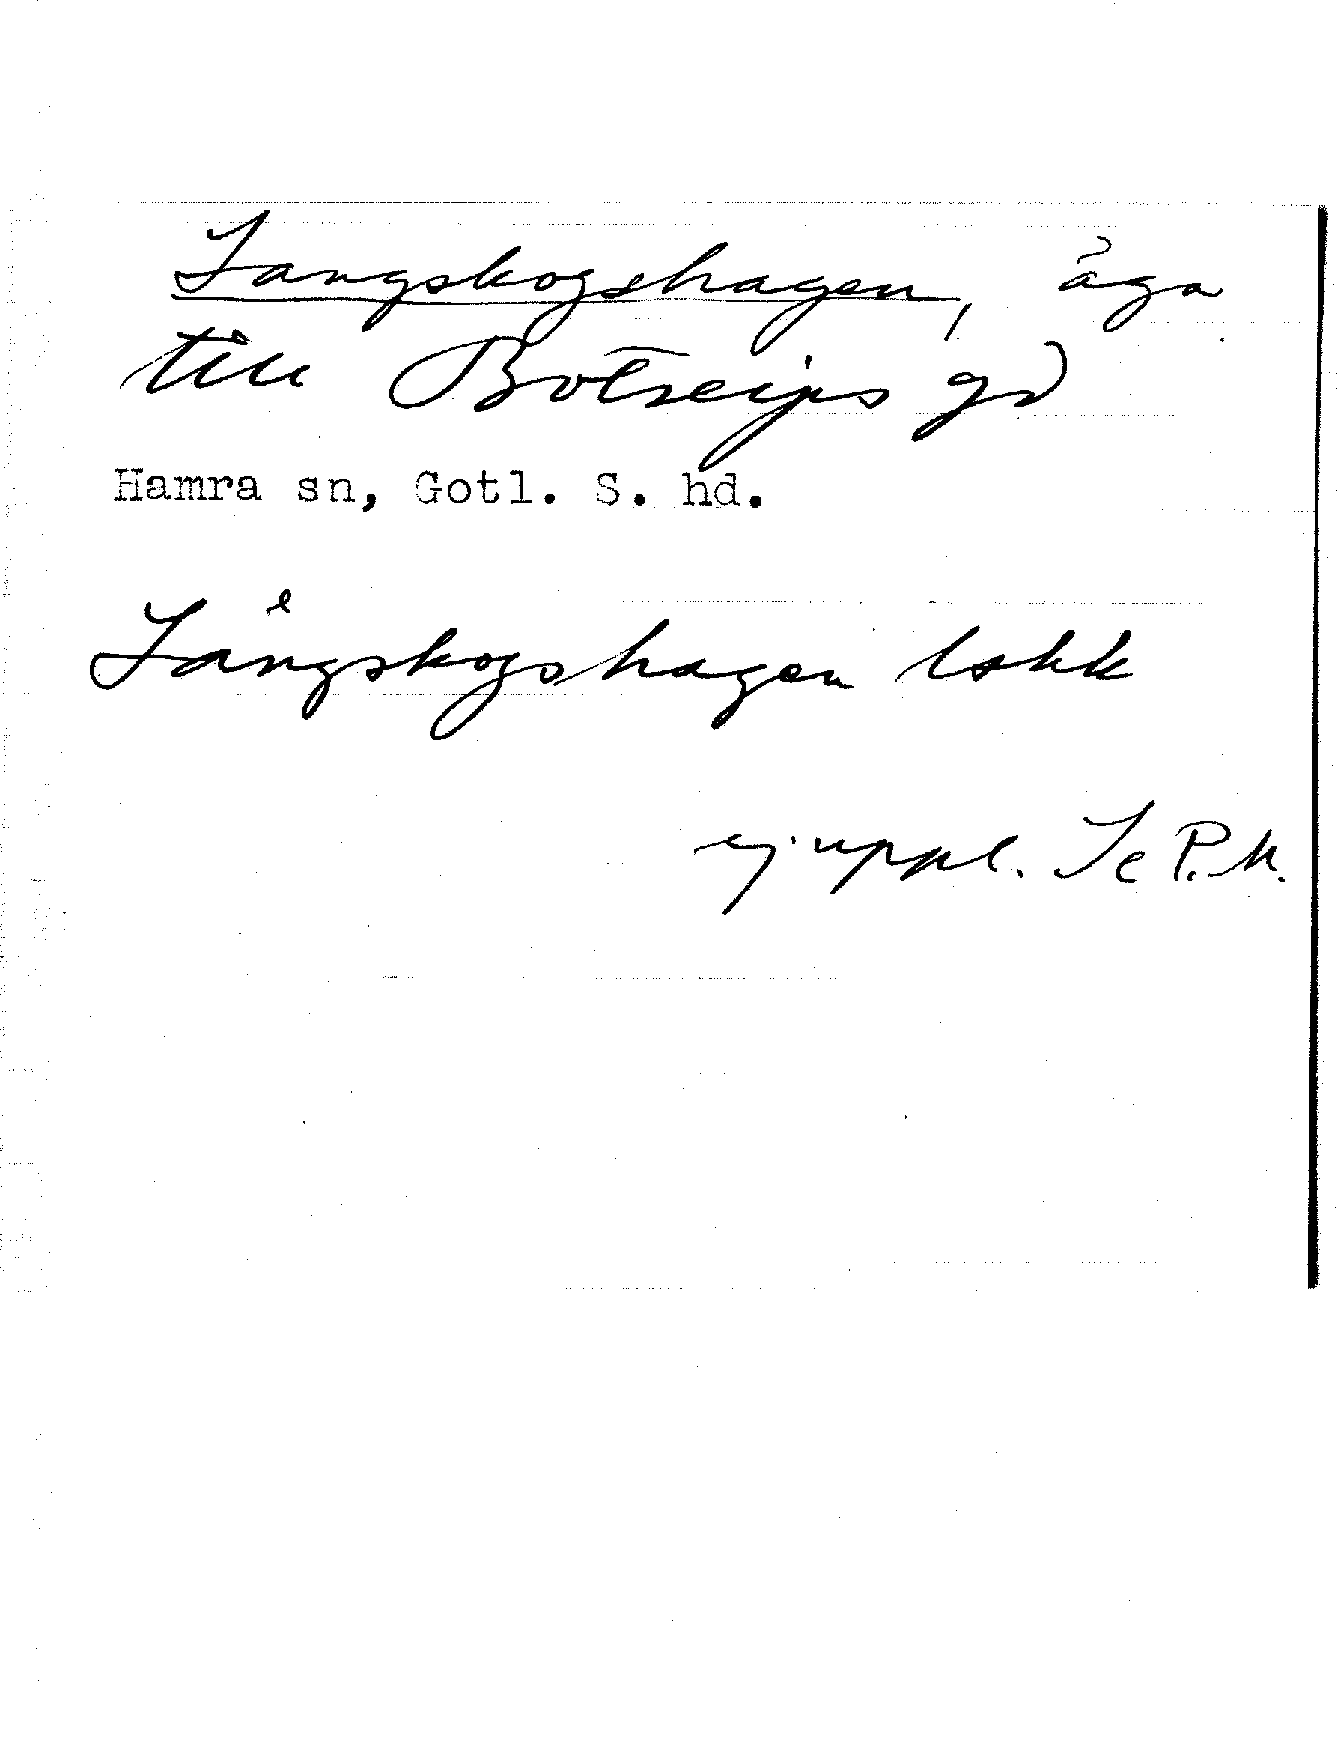 Långskogshagen, äga
till Botreips gd
Hamra sn, Gotl. S. hd.
Långskogshagen lokk
ej uppl. Se P.M.